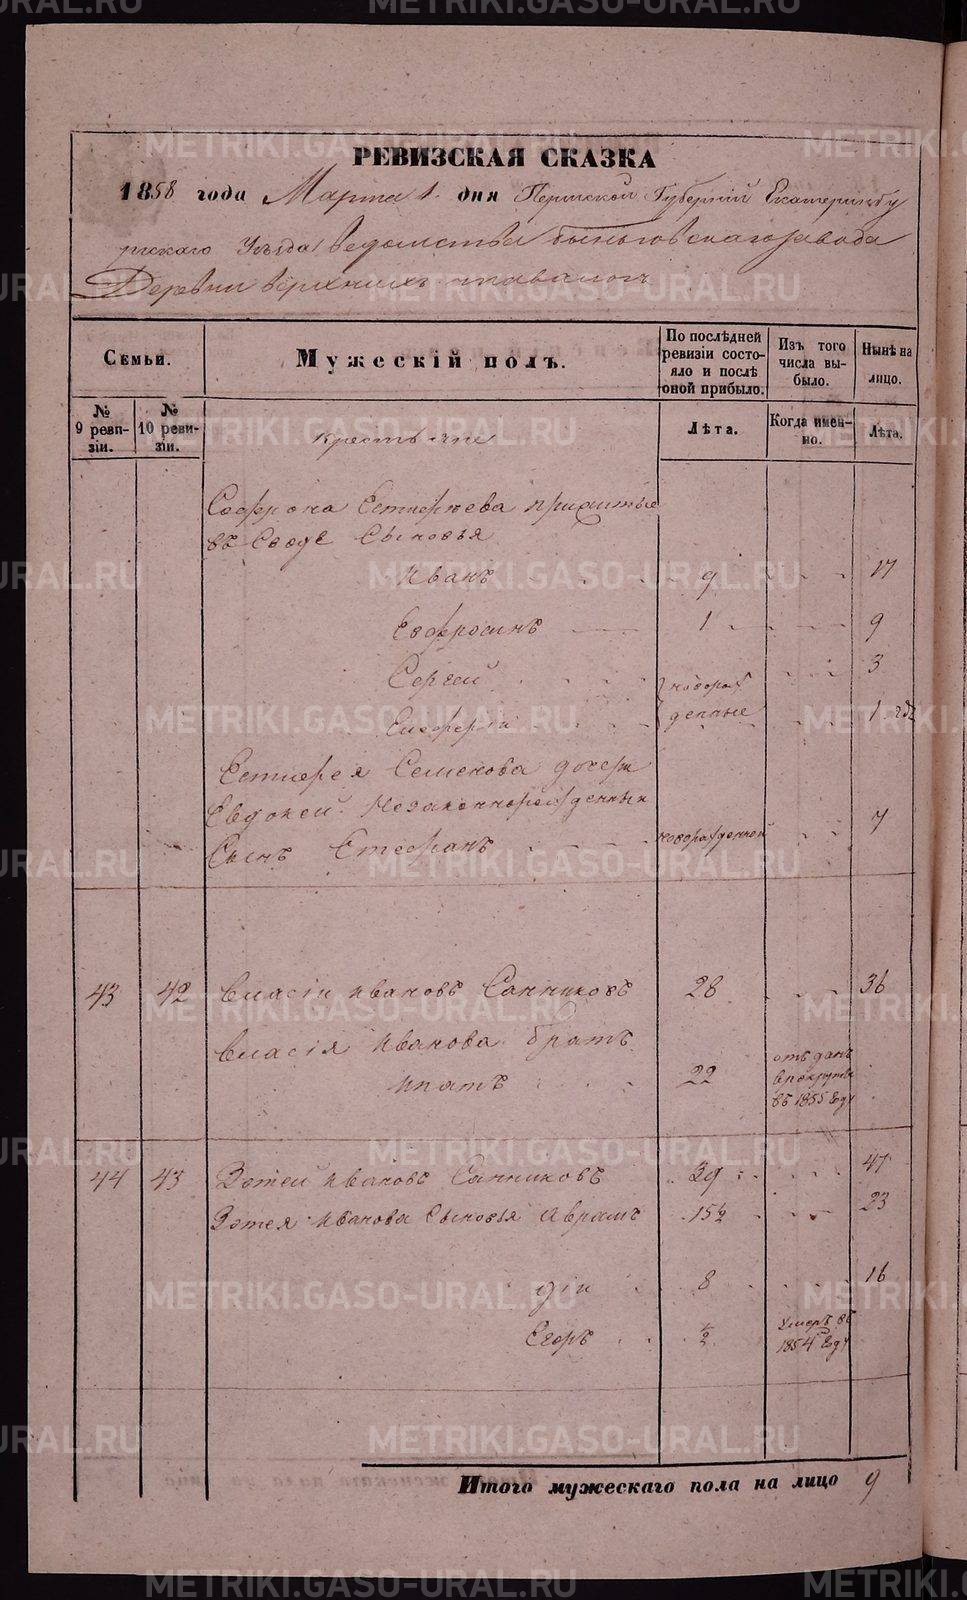 РЕВИЗСКАЯ СКАЗКА
1858 года Марта 1 дня Пермской Губернии Екатеринбу
ргскаго Уѣзда ведомства быньговскаго завода
Деревни верхнихъ тавологъ
Семьи.
Мужескій полъ.
По послѣдней ревизіи состояло и послѣ оной прибыло.
Изъ того числа выбыло.
Нынѣ на лицо.
№ 9 ревизіи.
№ 10 ревизіи.
крестьяне
Лѣта.
Когда именно.
Лѣта.
Софрона Естифѣева прижитые
въ Сводѣ Сыновья
Иванъ 9 17
Евфросинъ 1 9
Сергей 3
новорожденные
1 годъ
Естифея Семенова дочери
Евдокеи Незаконнорожденный
Сынъ Стефанъ новорожденной 7
43 42 Власій Ивановъ Санниковъ 28 36
Власія Иванова братъ
Ипатъ 22 отданъ в рекруты въ 1855 году
44 43 Зотей Ивановъ Санниковъ 39 47
Зотея Иванова Сыновья Аврамъ 15½ 23
дiи 8 16
Егоръ ½ умеръ въ 1854 году
Итого мужескаго пола на лицо 9
METRIKI.GASO-URAL.RU